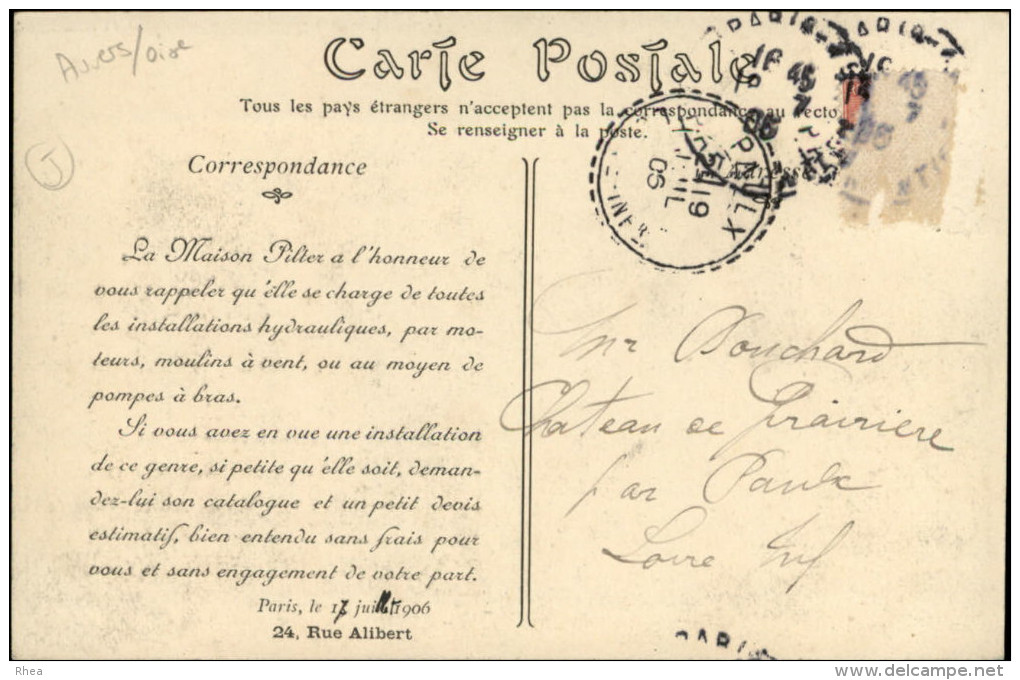 Auvers/Oise
Carte Postale
Tous les pays étrangers n'acceptent pas la correspondance au recto
Se renseigner à la poste.
J
Correspondance
PARIS
16 45
19
JUIL
06
INFRE
La Maison Pilter a l'honneur de
vous rappeler qu'elle se charge de toutes
les installations hydrauliques, par mo-
teurs, moulins à vent, ou au moyen de
pompes à bras.
Si vous avez en vue une installation
de ce genre, si petite qu'elle soit, deman-
dez-lui son catalogue et un petit devis
estimatif, bien entendu sans frais pour
vous et sans engagement de votre part.
Paris, le 17 juillet 1906
24, Rue Alibert
Mr Bouchard
Chateau de Prairière
par Paulx
Loire Inf
PARIS
Rhea
www.delcampe.net